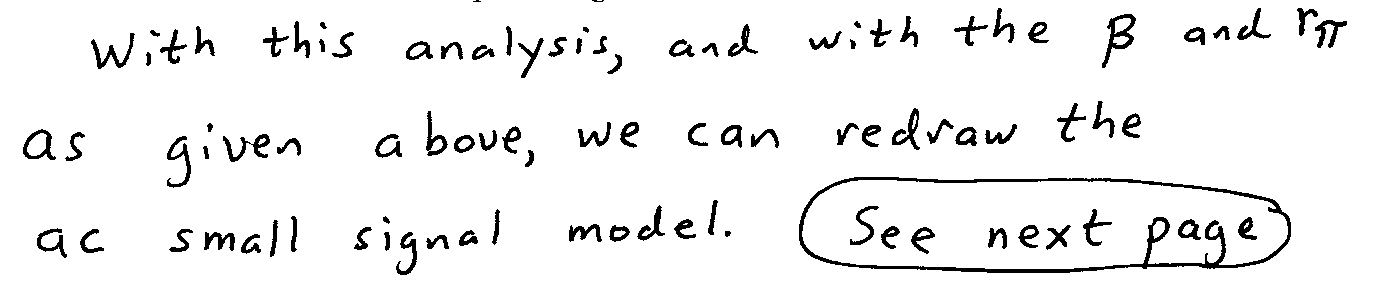 With this analysis, and with the β and rπ
as given above, we can redraw the
ac small signal model. See next page